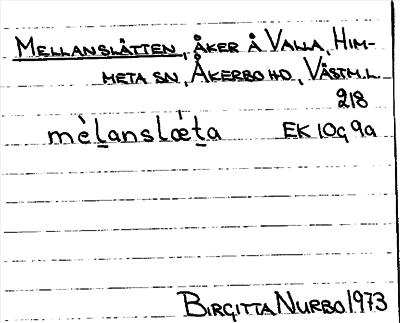 MELLANSLÄTTEN, ÅKER Å VALLA, HIM-
META SN, ÅKERBO HD, VÄSTM.L.
218
mèl̠anslǽt̠a EK 10g 9a
BIRGITTA NURBO 1973